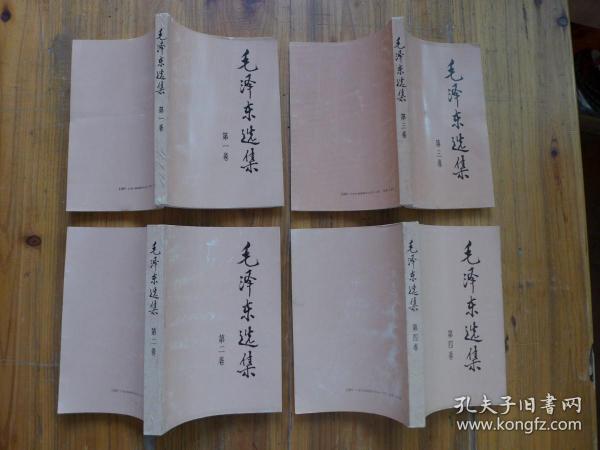 毛泽东选集
第一卷
毛泽东选集
第一卷
毛泽东选集
第三卷
毛泽东选集
第三卷
毛泽东选集
第二卷
毛泽东选集
第二卷
毛泽东选集
第四卷
毛泽东选集
第四卷
孔夫子旧书网
www.kongfz.com